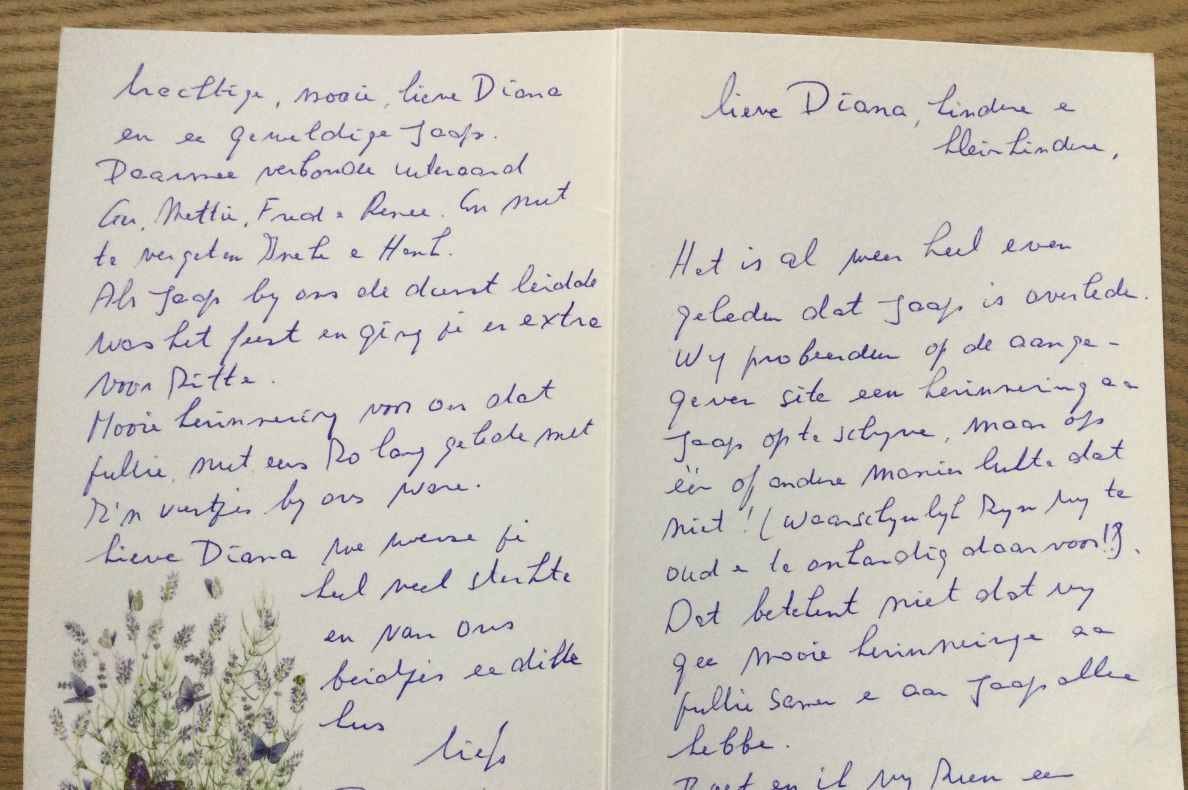 krachtige, mooie, lieve Diana
en ee geweldige Jaap.
Daarmee verbonde uiteraard
Ger, Nettie, Fred e Renee. En niet
te vergeten Greta e Henk.
Als Jaap by ons de dienst leidde
was het feest en ging je er extra
voor zitte.
Mooie herinnering voor ons dat
jullie, niet eens zo lang gelede met
z'n viertjes by ons ware.
Lieve Diana we wense je
heel veel sterkte
en van ons
beidjes ee dikke
kus
liefs
lieve Diana, kindere e
kleinkindere,
Het is al weer heel even
geleden dat Jaap is overlede.
Wy probeerden op de aange-
geven site een herinnering aa
Jaap op te schryve, maar op
één of andere manier lukte dat
niet! (waarschynlyk zyn wy te
oud e te onhandig daarvoor!?).
Dat betekent niet dat wy
gee mooie herinneringe aa
jullie samen e aan Jaap allee
hebbe.
en ik wy zien ee